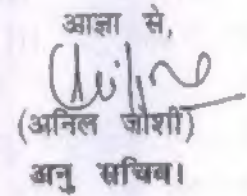 आज्ञा से,
(अनिल जोशी)
अनु सचिव।